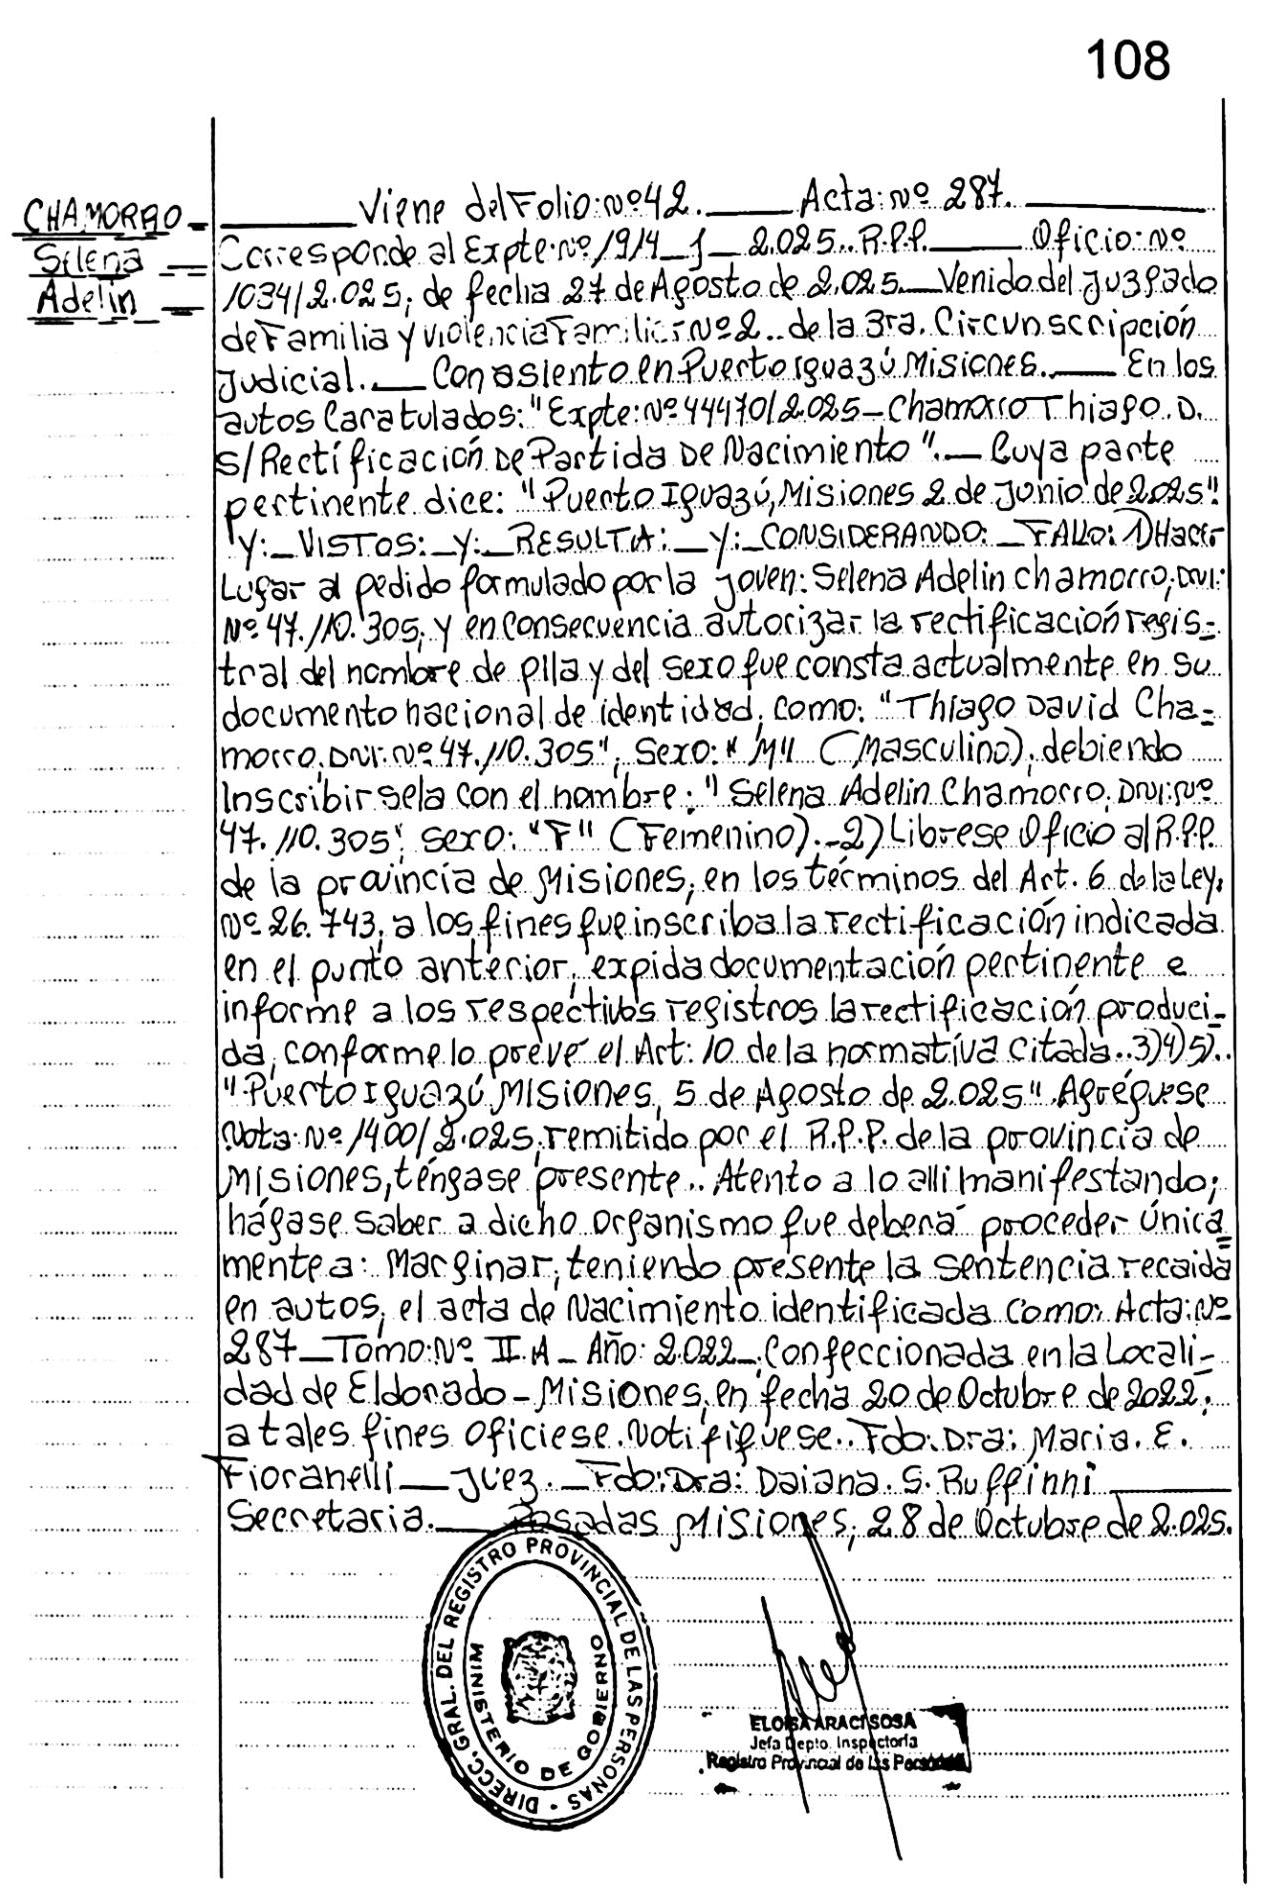 108
CHAMORRO
Selena
Adelin
Viene del Folio: Nº 42. Acta: Nº 287.
Corresponde al Expte: Nº 1914 - J - 2.025.. R.P.P. Oficio: Nº
1034/2.025, de fecha 27 de Agosto de 2.025. Venido del Juzgado
de Familia y violencia Familiar Nº 2.. de la 3ra. Circunscripción
Judicial. Con asiento en Puerto Iguazú Misiones. En los
autos Caratulados: "Expte: Nº 44470/2.025 - Chamorro Thiago. D.
s/ Rectificación De Partida De Nacimiento". Cuya parte
pertinente dice: "Puerto Iguazú, Misiones 2 de Junio de 2.025".
Y: VISTOS: Y: RESULTA: Y: CONSIDERANDO: FALLO: 1) Hacer
Lugar al pedido formulado por la joven: Selena Adelin Chamorro, DNI:
Nº 47.110.305, y en Consecuencia autorizar la rectificación regis-
tral del nombre de pila y del sexo que consta actualmente en su
documento nacional de identidad, como: "Thiago David Cha-
morro, DNI. Nº 47.110.305", Sexo: "M" (Masculino), debiendo
Inscribirsela con el nombre: "Selena Adelin Chamorro, DNI: Nº
47.110.305" sexo: "F" (Femenino). -2) Librese Oficio al R.P.P.
de la provincia de Misiones, en los términos del Art. 6 de la Ley,
Nº 26.743, a los fines que inscriba la rectificación indicada
en el punto anterior, expida documentación pertinente e
informe a los respectivos registros la rectificación produci-
da, conforme lo prevé el Art: 10 de la normativa citada.. 3)4)5)..
"Puerto Iguazú Misiones, 5 de Agosto de 2.025" Agréguese
Nota: Nº 1400/2.025, remitido por el R.P.P. de la provincia de
Misiones, téngase presente.. Atento a lo alli manifestando;
hágase saber a dicho organismo que deberá proceder única
mente a: Marginar, teniendo presente la sentencia recaida
en autos, el acta de Nacimiento identificada como: Acta: Nº
287 - Tomo: Nº II. A - Año: 2.022 - Confeccionada en la Locali-
dad de Eldorado - Misiones, en fecha 20 de Octubre de 2022,
a tales fines Oficiese. Notifiquese.. Fdo: Dra: Maria. E.
Fioranelli - Juez. - Fdo: Dra: Daiana. S. Ruffinni
Secretaria. Posadas Misiones, 28 de Octubre de 2.025.
DIRECC. GRAL. DEL REGISTRO PROVINCIAL DE LAS PERSONAS
MINISTERIO DE GOBIERNO
ELOISA ARACI SOSA
Jefa Depto. Inspectoría
Registro Provincial de las Personas